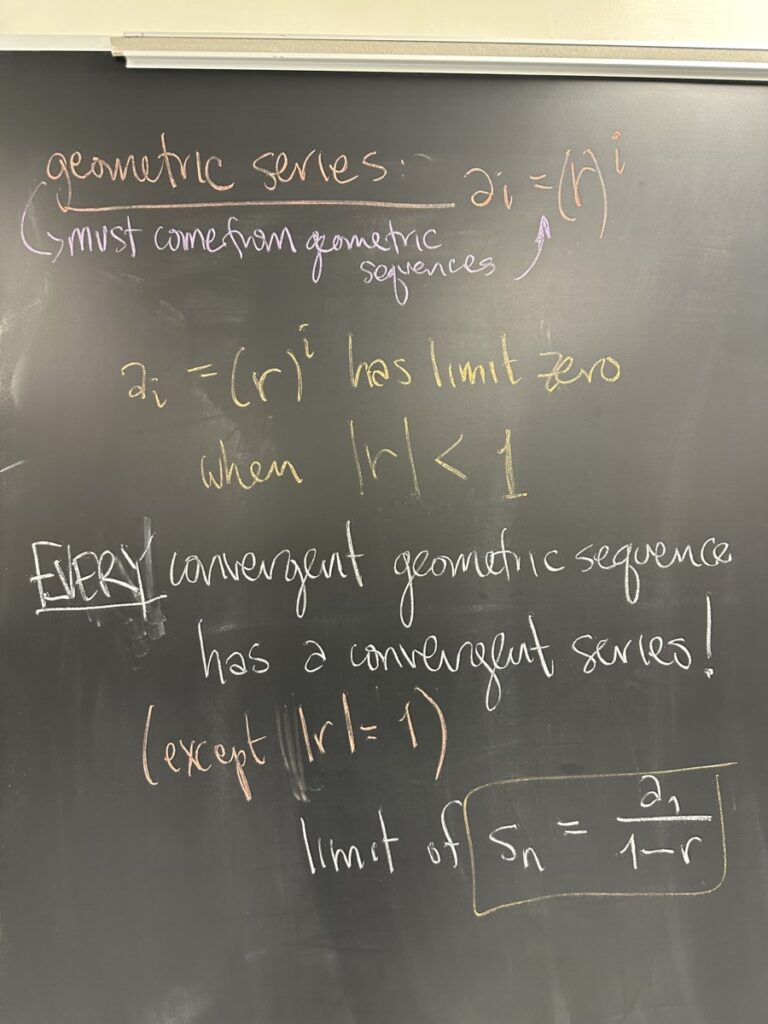 geometric series: aᵢ = (r)ⁱ
↳ must come from geometric
sequences
aᵢ = (r)ⁱ has limit zero
when |r| < 1
EVERY convergent geometric sequence
has a convergent series!
(except |r| = 1)
limit of Sₙ = a₁/(1-r)